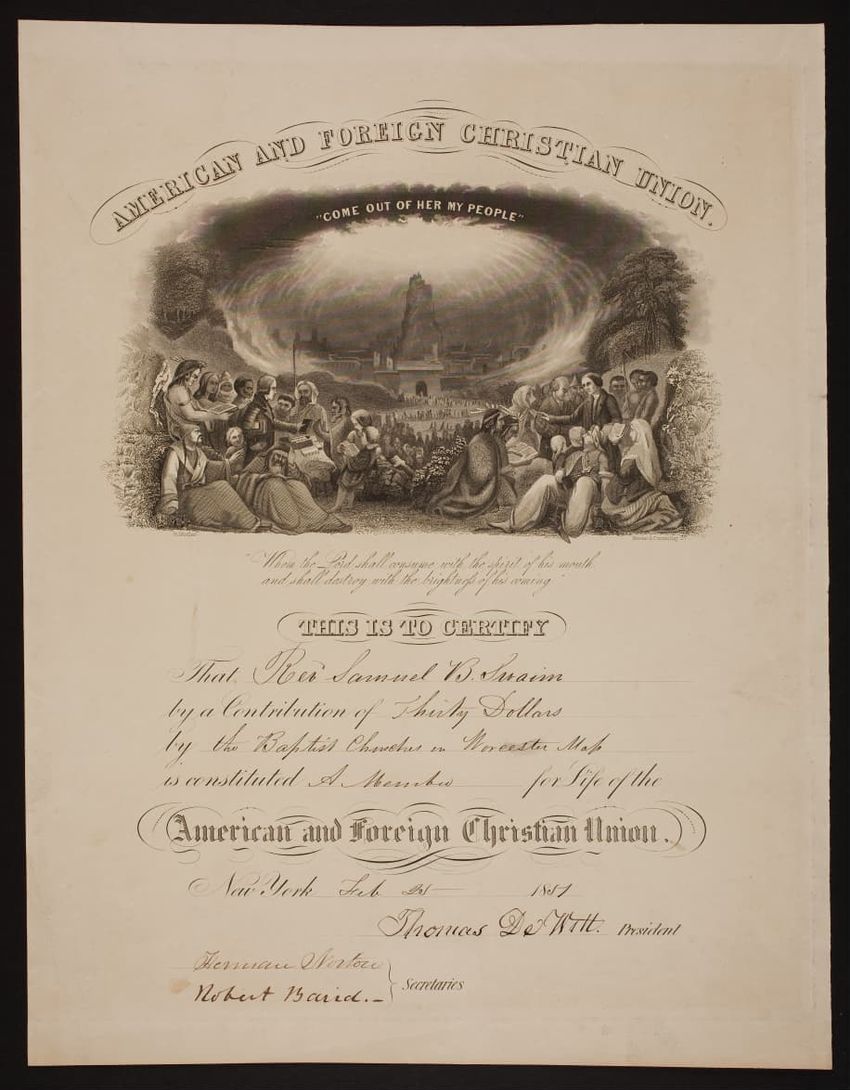 AMERICAN AND FOREIGN CHRISTIAN UNION.
"COME OUT OF HER MY PEOPLE"
"Whom the Lord shall consume with the spirit of his mouth
and shall destroy with the brightness of his coming."
THIS IS TO CERTIFY
That Rev Samuel B. Swaim
by a Contribution of Thirty Dollars
by the Baptist Churches in Worcester Mass
is constituted A Member for Life of the
American and Foreign Christian Union.
New York Feb 25 1851
Thomas De Witt. President
Herman Norton
Robert Baird.
Secretaries